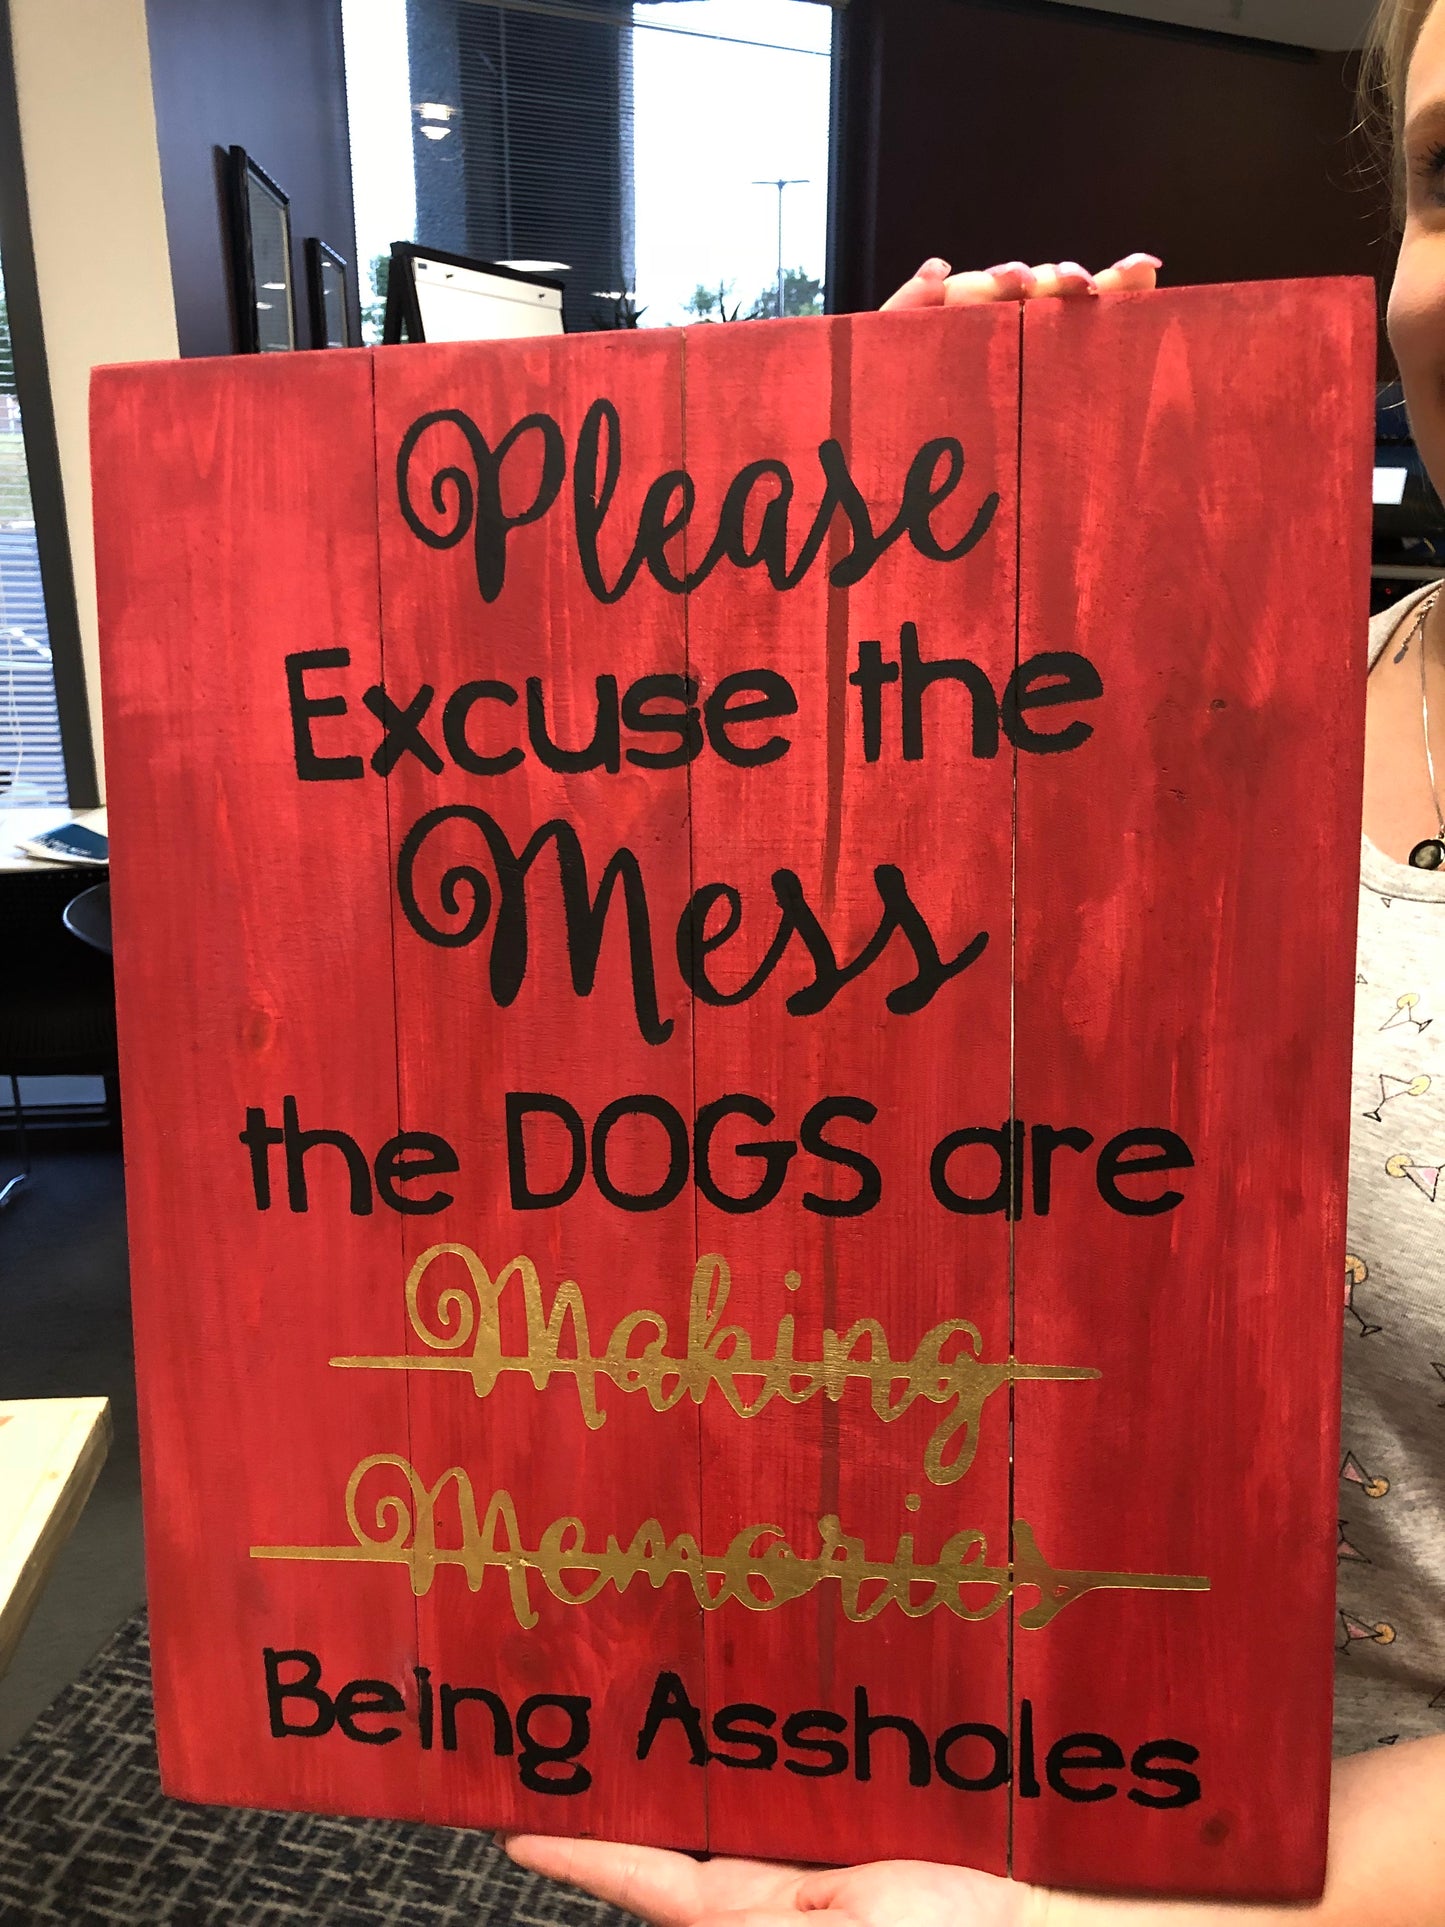 Please
Excuse the
Mess
the DOGS are
Making
Memories
Being Assholes